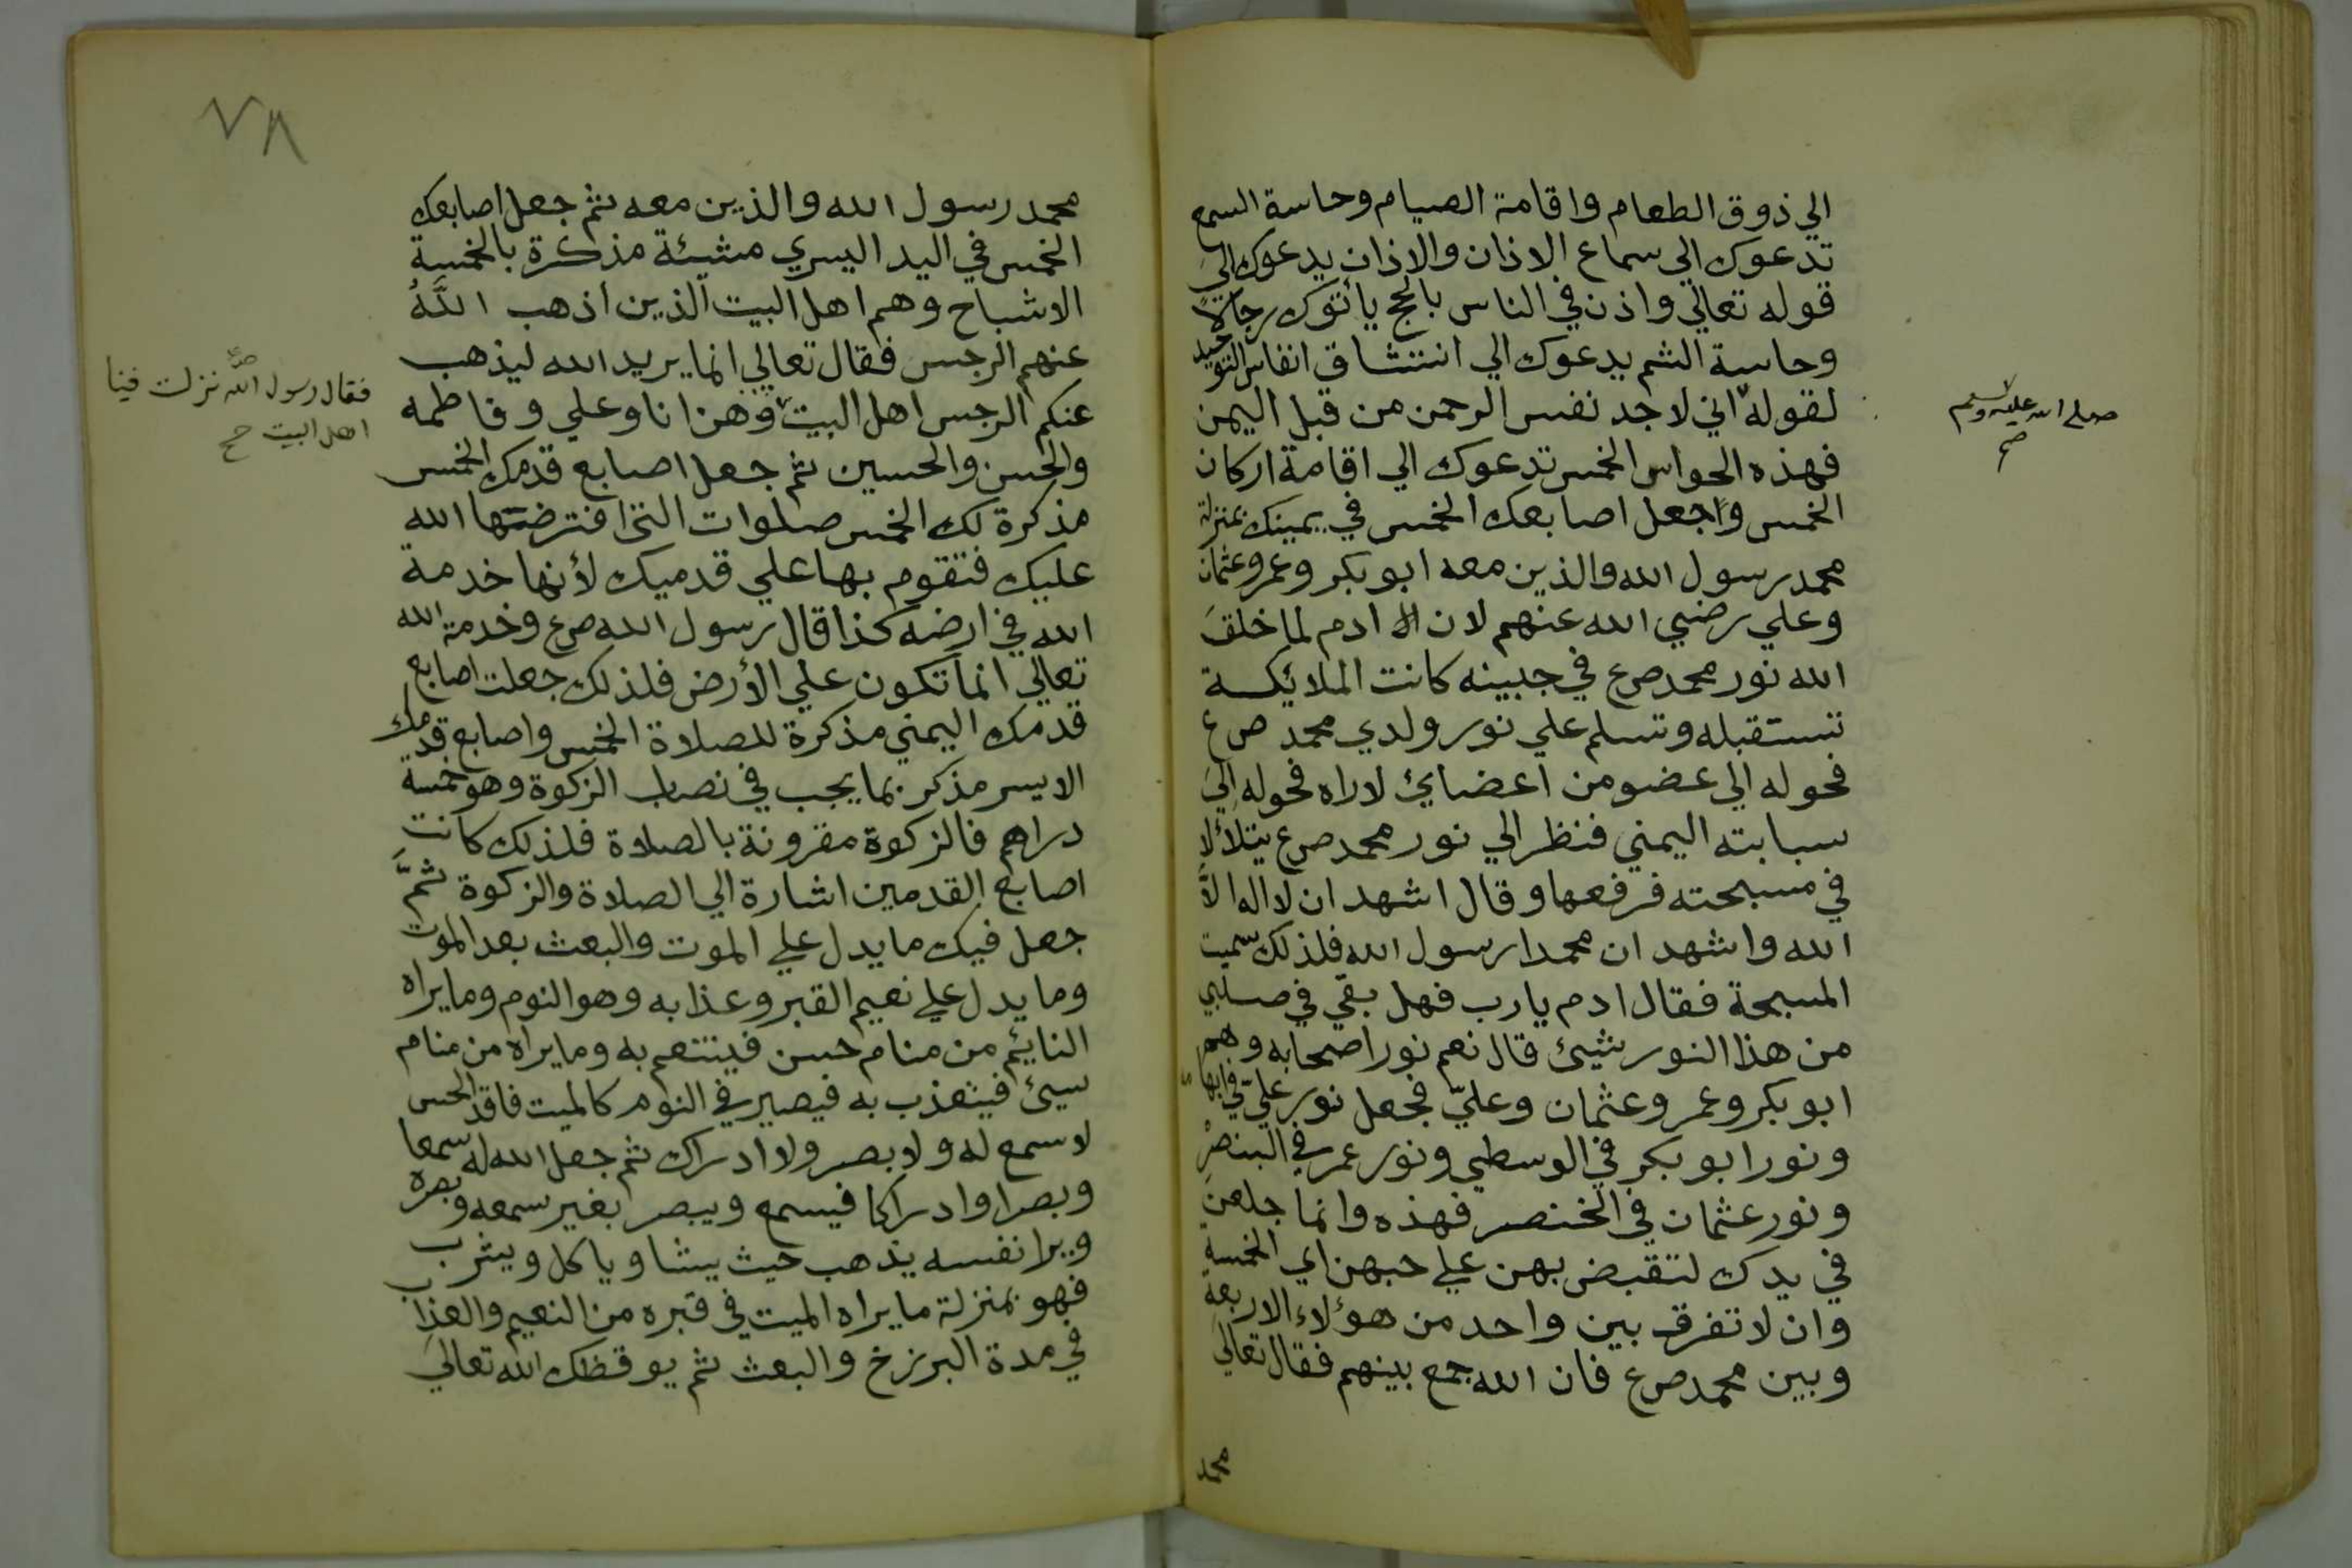 الي ذوق الطعام واقامة الصيام وحاسة السمع
تدعوك الي سماع الاذان والاذان يدعوك الي
قوله تعالي واذن في الناس بالحج يأتوك رجالا
وحاسة الشم يدعوك الي انتشاق انفاس التوحيد
لقوله اني لاجد نفس الرحمن من قبل اليمن
صلي الله عليه وسلم
صح
فهذه الحواس الخمس تدعوك الي اقامة اركان
الخمس واجعل اصابعك الخمس في يمينك بمنزلة
محمد رسول الله والذين معه ابو بكر وعمر وعثمان
وعلي رضي الله عنهم لان ادم لما خلق
الله نور محمد صرع في جبينه كانت الملائكة
تستقبله وتسلم علي نور ولدي محمد صرع
فحوله الي عضو من اعضائي لاراه فحوله الي
سبابته اليمني فنظر الي نور محمد صرع يتلألا
في مسبحته فرفعها وقال اشهد ان لا اله الا
الله واشهد ان محمدا رسول الله فلذلك سميت
المسبحة فقال ادم يا رب فهل بقي في صلبي
من هذا النور شيئ قال نعم نور اصحابه وهم
ابو بكر وعمر وعثمان وعليّ فجعل نور عليّ في ابها
ونور ابو بكر في الوسطي ونور عمر في البنصر
ونور عثمان في الخنصر فهذه وانما جلهن
في يدك لتقبض بهن علي حبهن اي الخمسة
وان لا تفرق بين واحد من هؤلاء الاربعة
وبين محمد صرع فان الله جمع بينهم فقال تعالي
محمد
٧٨
محمد رسول الله والذين معه ثم جعل اصابعك
الخمس في اليد اليسري مشيئة مذكرة بالخمسة
الاشباح وهم اهل البيت الذين اذهب اللَّهُ
عنهم الرجس فقال تعالي انما يريد الله ليذهب
عنكم الرجس اهل البيت وهن انا وعلي وفاطمه
فقال رسول الله نزلت فينا
اهل البيت صح
والحسن والحسين ثم جعل اصابع قدمك الخمس
مذكرة لك الخمس صلوات التي افترضتها الله
عليك فتقوم بها علي قدميك لأنها خدمة
الله في ارضه كذا قال رسول الله صرع وخدمة الله
تعالي انما تكون علي الأرض فلذلك جعلت اصابع
قدمك اليمني مذكرة للصلاة الخمس واصابع قدمك
الايسر مذكر بما يجب في نصاب الزكوة وهو خمسة
دراهم فالزكوة مقرونة بالصلاة فلذلك كانت
اصابع القدمين اشارة الي الصلاة والزكوة ثمَّ
جعل فيك ما يدل علي الموت والبعث بعد الموت
وما يدل علي نعيم القبر وعذابه وهو النوم وما يراه
النائم من منام حسن فيتنعم به وما يراه من منام
سيئ فيتعذب به فيصير في النوم كالميت فاقد الحس
لا سمع له ولا بصر ولا ادراك ثم جعل الله له سمعا
وبصرا وادراكا فيسمع ويبصر بغير سمعه وبصره
ويرا نفسه يذهب حيث يشا وياكل ويشرب
فهو بمنزلة ما يراه الميت في قبره من النعيم والعذاب
في مدة البرزخ والبعث ثم يوقظك الله تعالي